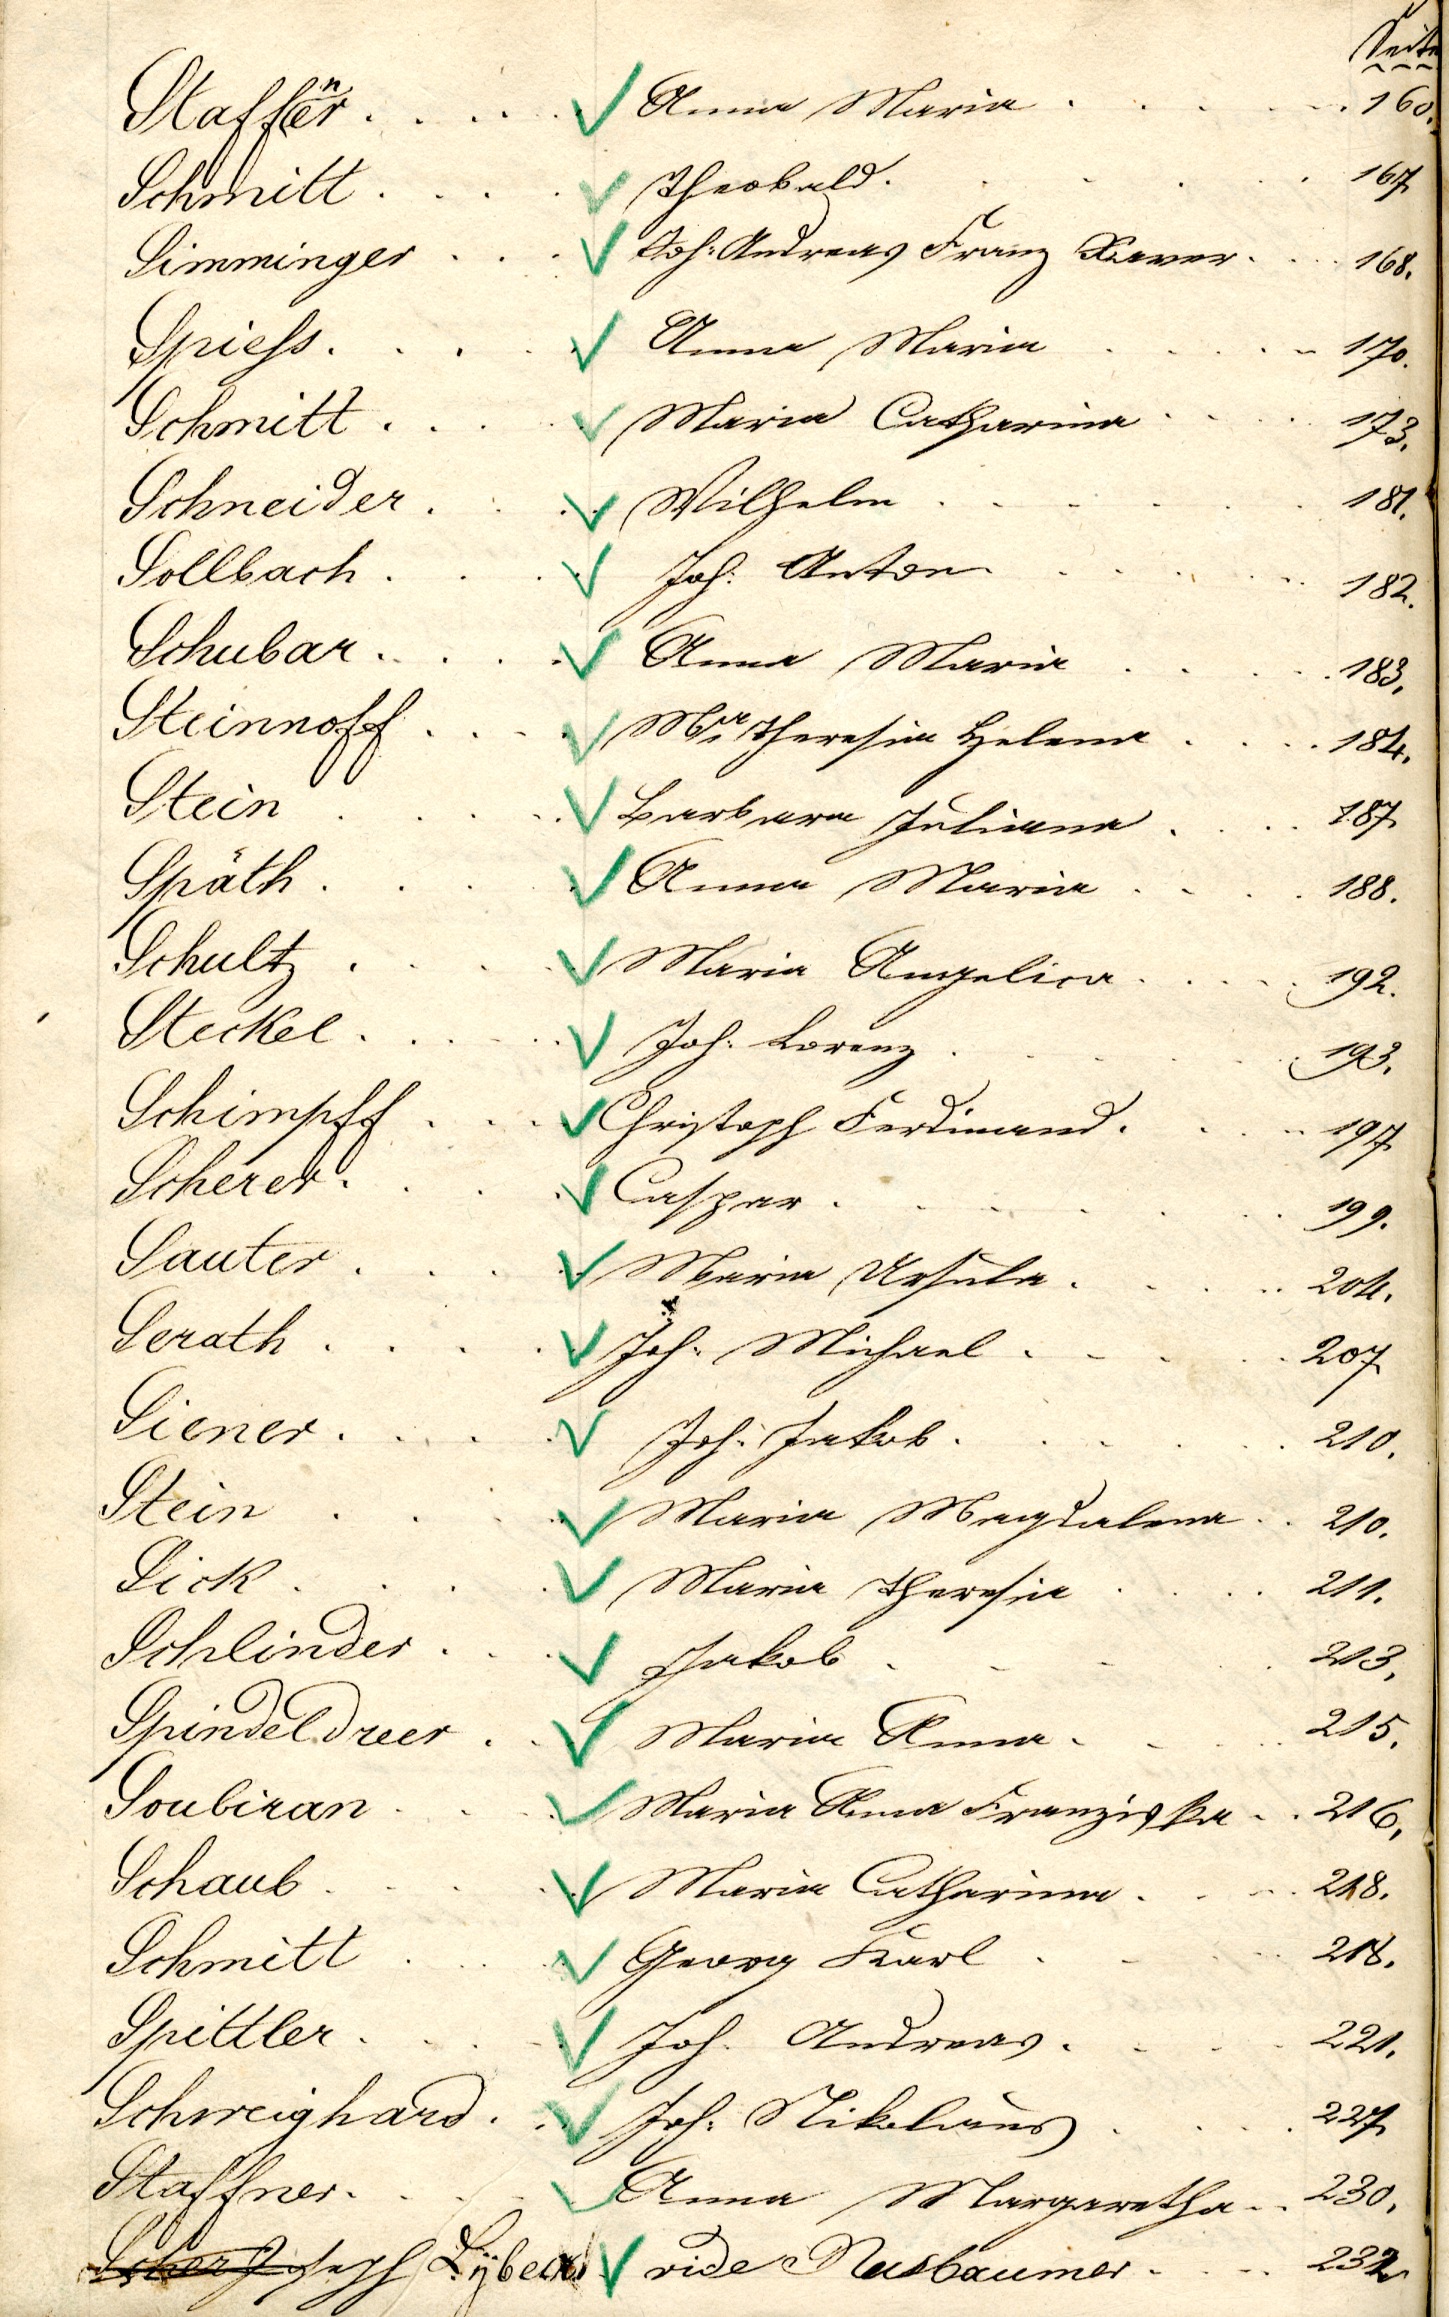 Seite
Staffner . . . . . Anna Maria . . . . . 160.
Schmitt . . . . Theobald . . . . . 167
Simminger . . . Joh: Andreas Franz Xaver . . . 168.
Spiess . . . . . Anna Maria . . . . . 170.
Schmitt . . . . Maria Catharina . . . . 173.
Schneider . . . . Wilhelm . . . . . . 181.
Sollbach . . . . Joh: Anton . . . . . 182.
Schubar . . . . . Anna Maria . . . . . 183.
Steinnoff . . . . Mra Theresia Helena . . . . 184.
Stein . . . . . Barbara Juliana . . . . 187
Späth . . . . . Anna Maria . . . . 188.
Schultz . . . . Maria Angelica . . . . 192.
Steckel . . . . . Joh: Lorenz . . . . . . 193.
Schimpff . . . . Christoph Ferdinand . . . . 197
Scherer . . . . . Caspar . . . . . . 199.
Sauter . . . . . Maria Ursula . . . . . 204.
Serath . . . . . Joh: Michael . . . . . 207
Siener . . . . . Joh: Jakob . . . . . . 210.
Stein . . . . Maria Magdalena . . 210.
Sick . . . . Maria Theresia . . . . 211.
Schlinder . . . . Jakob . . . . 213.
Spindeldreer . . . Maria Anna . . . . 215.
Soubiran . . . . Maria Anna Franziska . . . 216.
Schaub . . . . Maria Catharina . . . . 218.
Schmitt . . . . Georg Karl . . . . 218.
Spittler . . . . Joh. Andreas . . . . 221.
Schweighard . . . Joh. Nikolaus . . . . 227
Staffner . . . . Anna Margaretha . . . 230.
Lÿbecd vide Nusbaumer . . . . 232